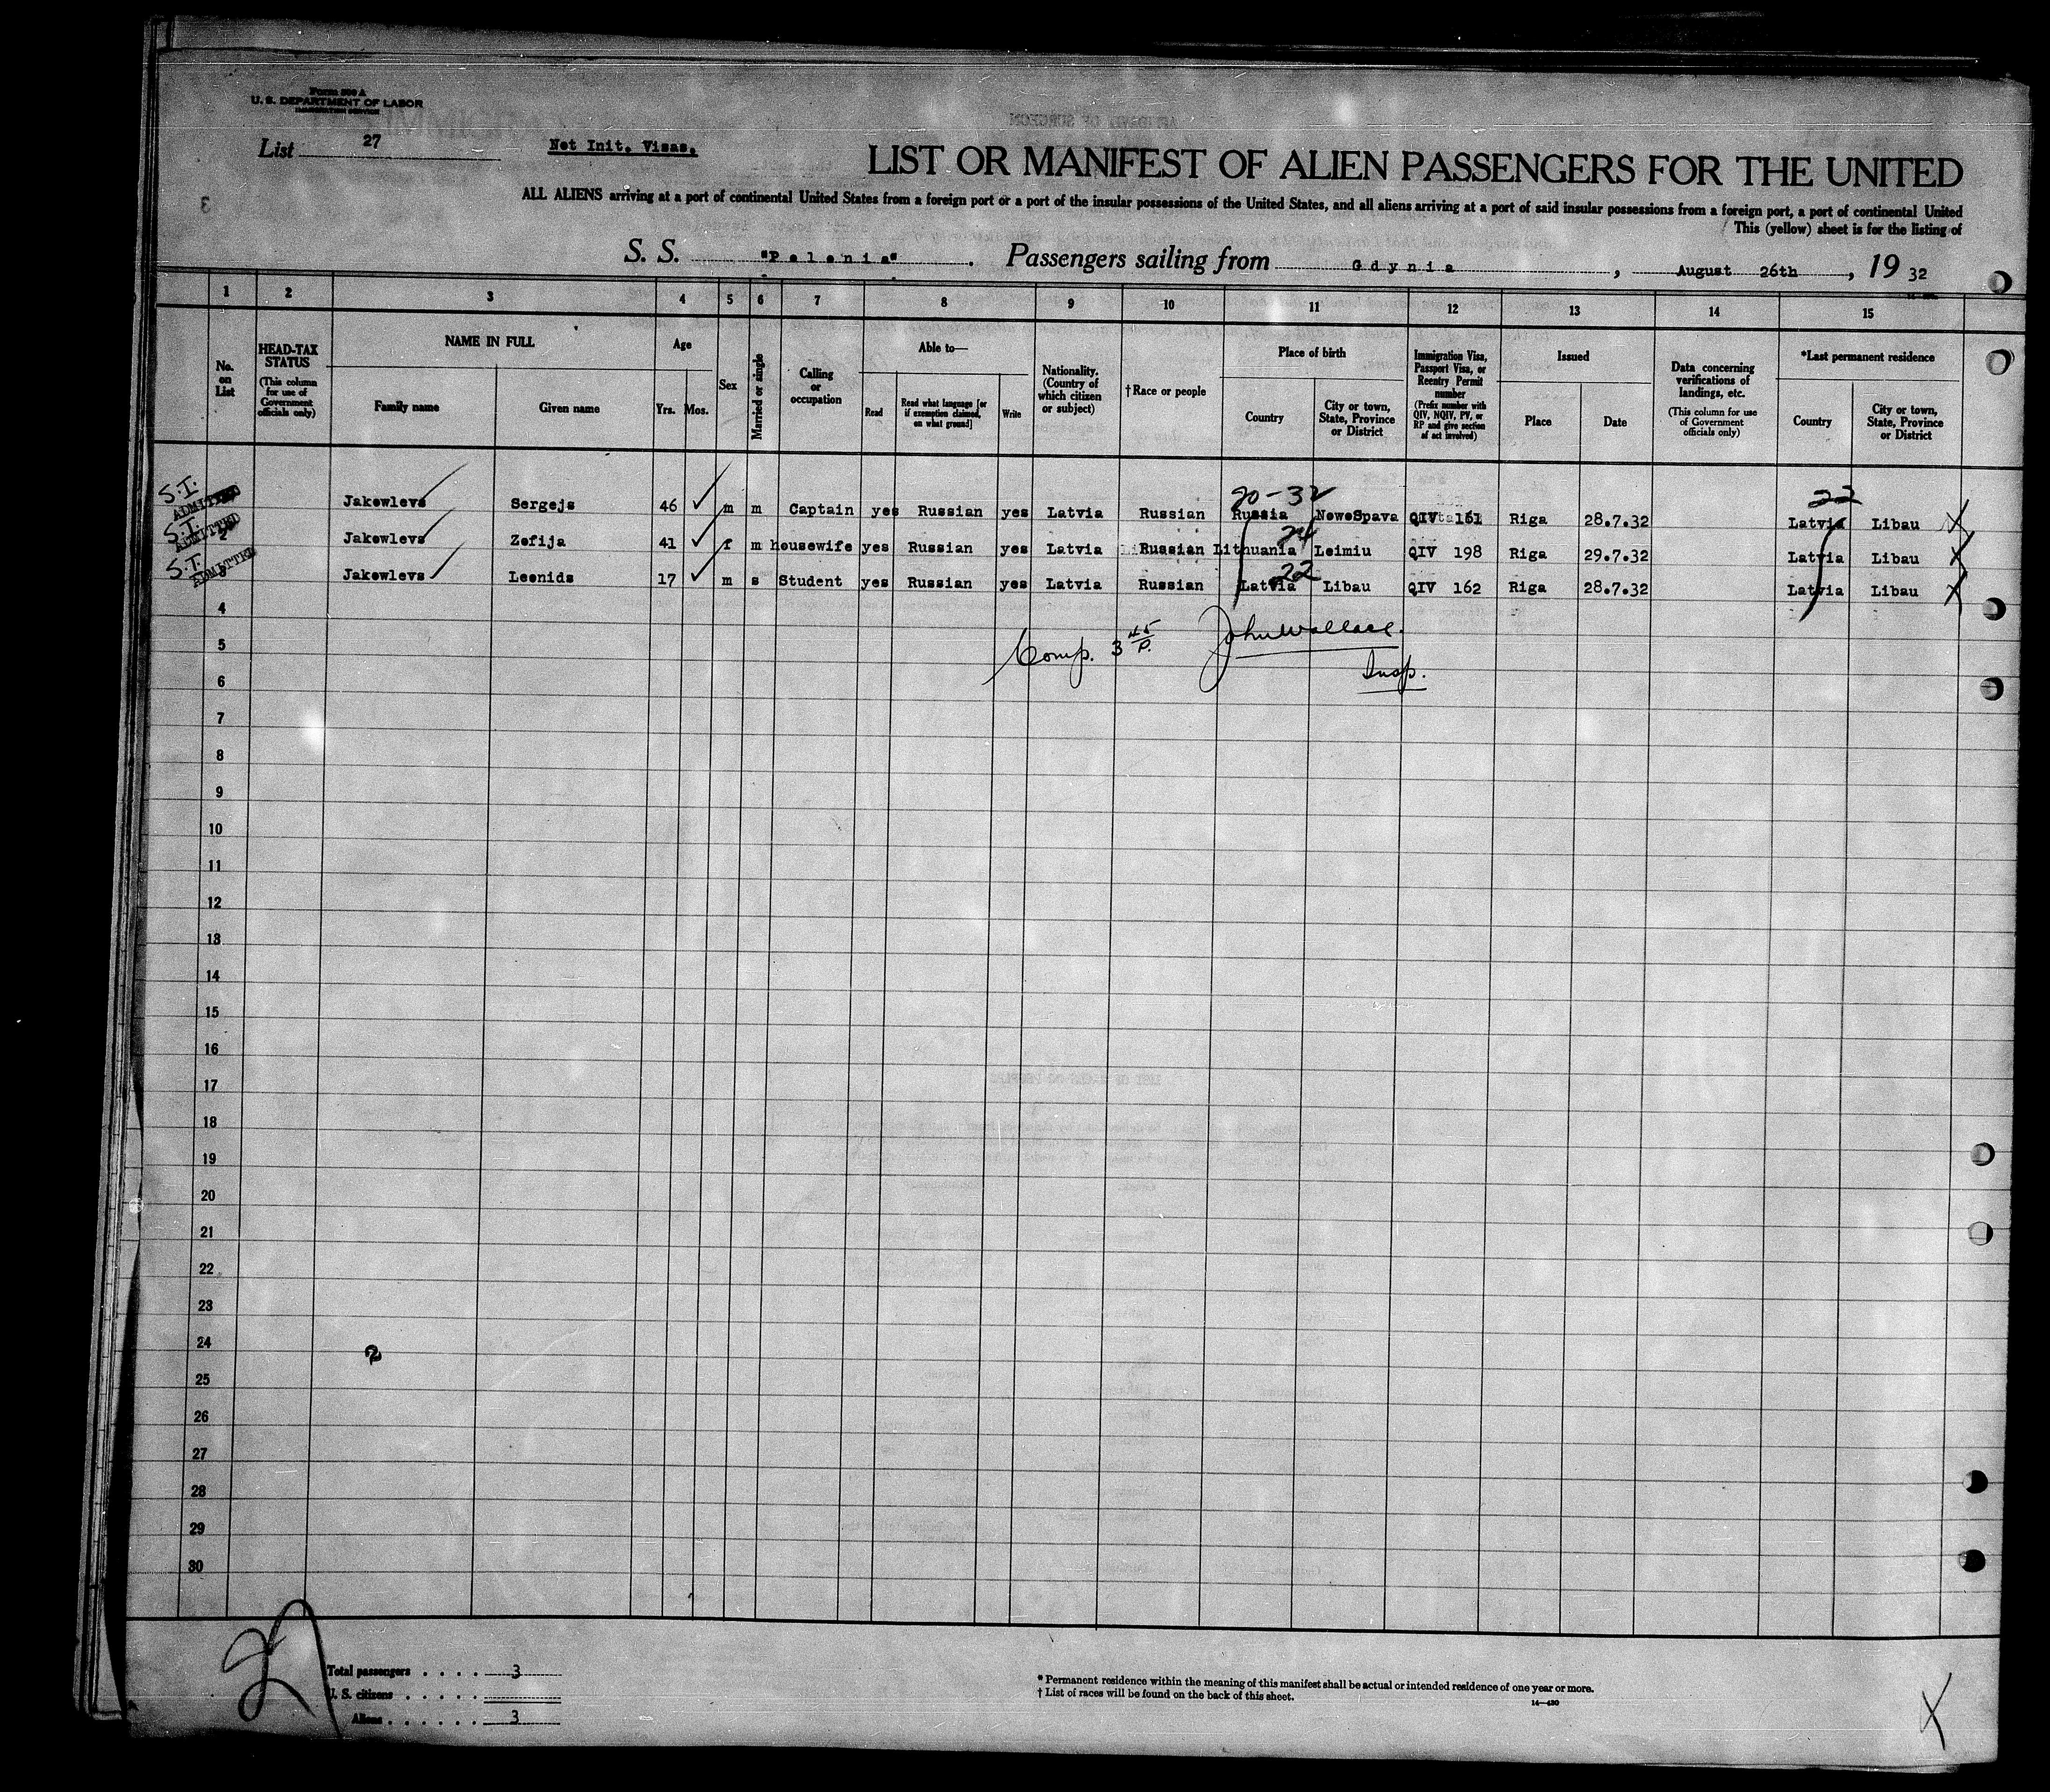 Form 500 A
U. S. DEPARTMENT OF LABOR
IMMIGRATION SERVICE
List 27
Not Init. Visas.
LIST OR MANIFEST OF ALIEN PASSENGERS FOR THE UNITED
ALL ALIENS arriving at a port of continental United States from a foreign port or a port of the insular possessions of the United States, and all aliens arriving at a port of said insular possessions from a foreign port, a port of continental United
This (yellow) sheet is for the listing of
S. S. "Polonia". Passengers sailing from Gdynia, August 26th, 19 32
1 2 3 4 5 6 7 8 9 10 11 12 13 14 15
No. on List
HEAD-TAX STATUS (This column for use of Government officials only)
NAME IN FULL
Family name
Given name
Age
Yrs. Mos.
Sex
Married or single
Calling or occupation
Able to—
Read
Read what language [or if exemption claimed, on what ground]
Write
Nationality. (Country of which citizen or subject)
†Race or people
Place of birth
Country
City or town, State, Province or District
Immigration Visa, Passport Visa, or Reentry Permit number (Prefix number with QIV, NQIV, PV, or RP and give section of act involved)
Issued
Place
Date
Data concerning verifications of landings, etc. (This column for use of Government officials only)
*Last permanent residence
Country
City or town, State, Province or District
S.I. 20-32 22
ADMITTED Jakowlevs Sergejs 46 m m Captain yes Russian yes Latvia Russian Russia NowoSpava QIV 161 Riga 28.7.32 Latvia Libau X
S.I. 24
ADMITTED 2 Jakowlevs Zofija 41 f m housewife yes Russian yes Latvia Russian Lithuania Leimiu QIV 198 Riga 29.7.32 Latvia Libau X
S.I. 22
ADMITTED 3 Jakowlevs Leonids 17 m s Student yes Russian yes Latvia Russian Latvia Libau QIV 162 Riga 28.7.32 Latvia Libau X
4
Comp. 3 45 P. John Wallace.
5
Insp.
6
7
8
9
10
11
12
13
14
15
16
17
18
19
20
21
22
23
24
25
26
27
28
29
30
27
Total passengers . . . . 3
U. S. citizens . . . . .
Aliens . . . . . . 3
* Permanent residence within the meaning of this manifest shall be actual or intended residence of one year or more.
† List of races will be found on the back of this sheet.
14—430
X